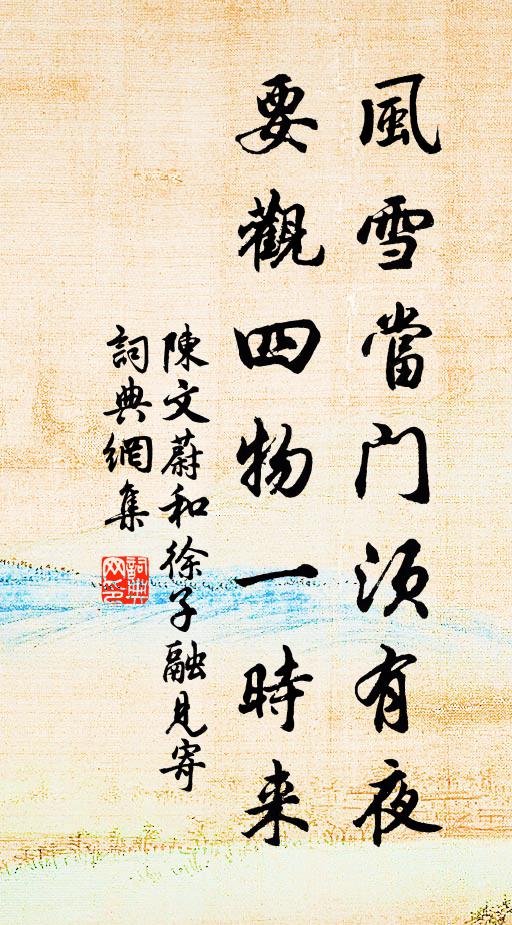 風雪當门須有夜
要觀四物一時来
陳文蔚和徐子融見寄
詞典網集
詞典网印